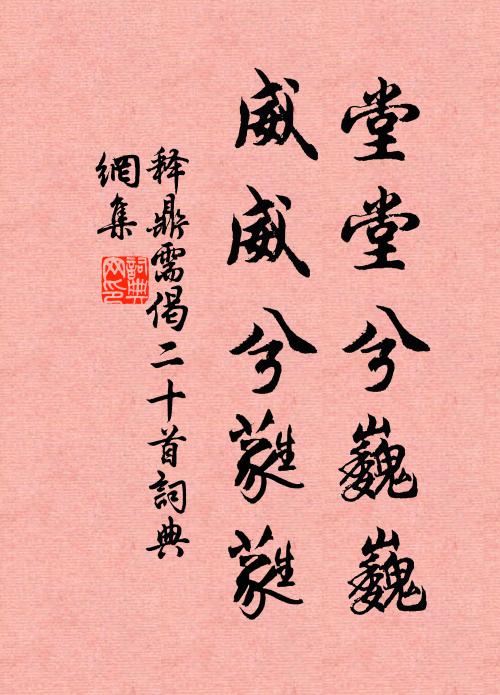 堂堂兮巍巍
威威兮蕤蕤
释鼎需偈二十首詞典
網集
詞典
网印